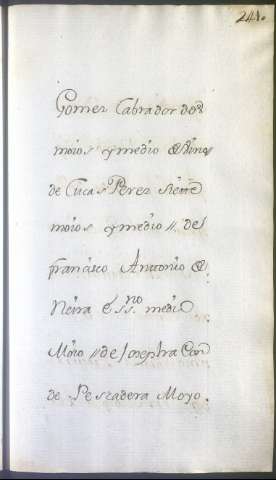 241.
Gomez Cabrador dos
moios y medio de Vino
de Lucas Perez Siette
moios y medio // de
francisco Antonio de
Neira ess.no medio
Moio // de Josephra Con
de Pescadera Moyo.